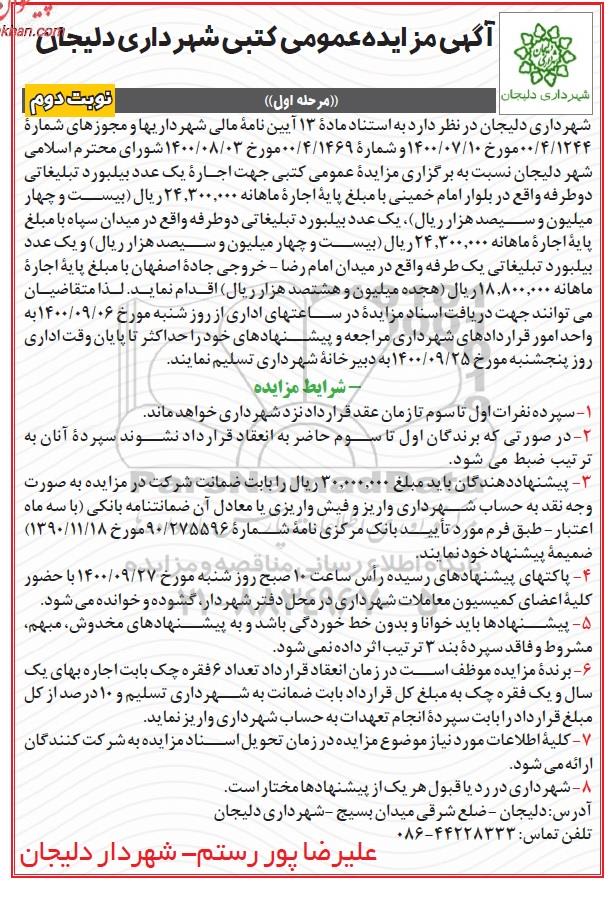 آگهی مزایده عمومی کتبی شهرداری دلیجان
شهرداری دلیجان
((مرحله اول))
نوبت دوم
شهرداری دلیجان در نظر دارد به استناد مادۀ ۱۳ آیین نامۀ مالی شهرداریها و مجوزهای شمارۀ
۰۰/۴/۱۲۴۴مورخ ۱۴۰۰/۰۷/۱۰و شمارۀ ۰۰/۴/۱۴۶۹مورخ ۱۴۰۰/۰۸/۰۳شورای محترم اسلامی
شهر دلیجان نسبت به برگزاری مزایدۀ عمومی کتبی جهت اجارۀ یک عدد بیلبورد تبلیغاتی
دوطرفه واقع در بلوار امام خمینی با مبلغ پایۀ اجارۀ ماهانه ۲۴,۳۰۰,۰۰۰ ریال (بیست و چهار
میلیون و سیصد هزار ریال)، یک عدد بیلبورد تبلیغاتی دوطرفه واقع در میدان سپاه با مبلغ
پایۀ اجارۀ ماهانه ۲۴,۳۰۰,۰۰۰ ریال (بیست و چهار میلیون و سیصد هزار ریال) و یک عدد
بیلبورد تبلیغاتی یک طرفه واقع در میدان امام رضا - خروجی جادۀ اصفهان با مبلغ پایۀ اجارۀ
ماهانه ۱۸,۸۰۰,۰۰۰ ریال (هجده میلیون و هشتصد هزار ریال) اقدام نماید. لذا متقاضیان
می توانند جهت دریافت اسناد مزایدۀ در ساعتهای اداری از روز شنبه مورخ ۱۴۰۰/۰۹/۰۶به
واحد امور قراردادهای شهرداری مراجعه و پیشنهادهای خود را حداکثر تا پایان وقت اداری
روز پنجشنبه مورخ ۱۴۰۰/۰۹/۲۵به دبیرخانۀ شهرداری تسلیم نمایند.
- شرایط مزایده
۱- سپرده نفرات اول تا سوم تا زمان عقد قرارداد نزد شهرداری خواهد ماند.
۲- در صورتی که برندگان اول تا سوم حاضر به انعقاد قرارداد نشوند سپردۀ آنان به
ترتیب ضبط می شود.
۳- پیشنهاددهندگان باید مبلغ ۳۰,۰۰۰,۰۰۰ ریال را بابت ضمانت شرکت در مزایده به صورت
وجه نقد به حساب شهرداری واریز و فیش واریزی یا معادل آن ضمانتنامه بانکی (با سه ماه
اعتبار - طبق فرم مورد تأیید بانک مرکزی نامۀ شمارۀ ۹۰/۲۷۵۵۹۶مورخ ۱۳۹۰/۱۱/۱۸)
ضمیمۀ پیشنهاد خود نمایند.
۴- پاکتهای پیشنهادهای رسیده رأس ساعت ۱۰ صبح روز شنبه مورخ ۱۴۰۰/۰۹/۲۷ با حضور
کلیۀ اعضای کمیسیون معاملات شهرداری در محل دفتر شهردار، گشوده و خوانده می شود.
۵- پیشنهادها باید خوانا و بدون خط خوردگی باشد و به پیشنهادهای مخدوش، مبهم،
مشروط و فاقد سپردۀ بند ۳ ترتیب اثر داده نمی شود.
۶- برندۀ مزایده موظف است در زمان انعقاد قرارداد تعداد ۶ فقره چک بابت اجاره بهای یک
سال و یک فقره چک به مبلغ کل قرارداد بابت ضمانت به شهرداری تسلیم و ۱۰درصد از کل
مبلغ قرارداد را بابت سپردۀ انجام تعهدات به حساب شهرداری واریز نماید.
۷- کلیۀ اطلاعات مورد نیاز موضوع مزایده در زمان تحویل اسناد مزایده به شرکت کنندگان
ارائه می شود.
۸- شهرداری در رد یا قبول هر یک از پیشنهادها مختار است.
آدرس: دلیجان - ضلع شرقی میدان بسیج - شهرداری دلیجان
تلفن تماس: ۴۴۲۲۸۳۳۳-۰۸۶
علیرضا پور رستم- شهردار دلیجان
ParsNamadData
پایگاه اطلاع رسانی مناقصه و مزایده